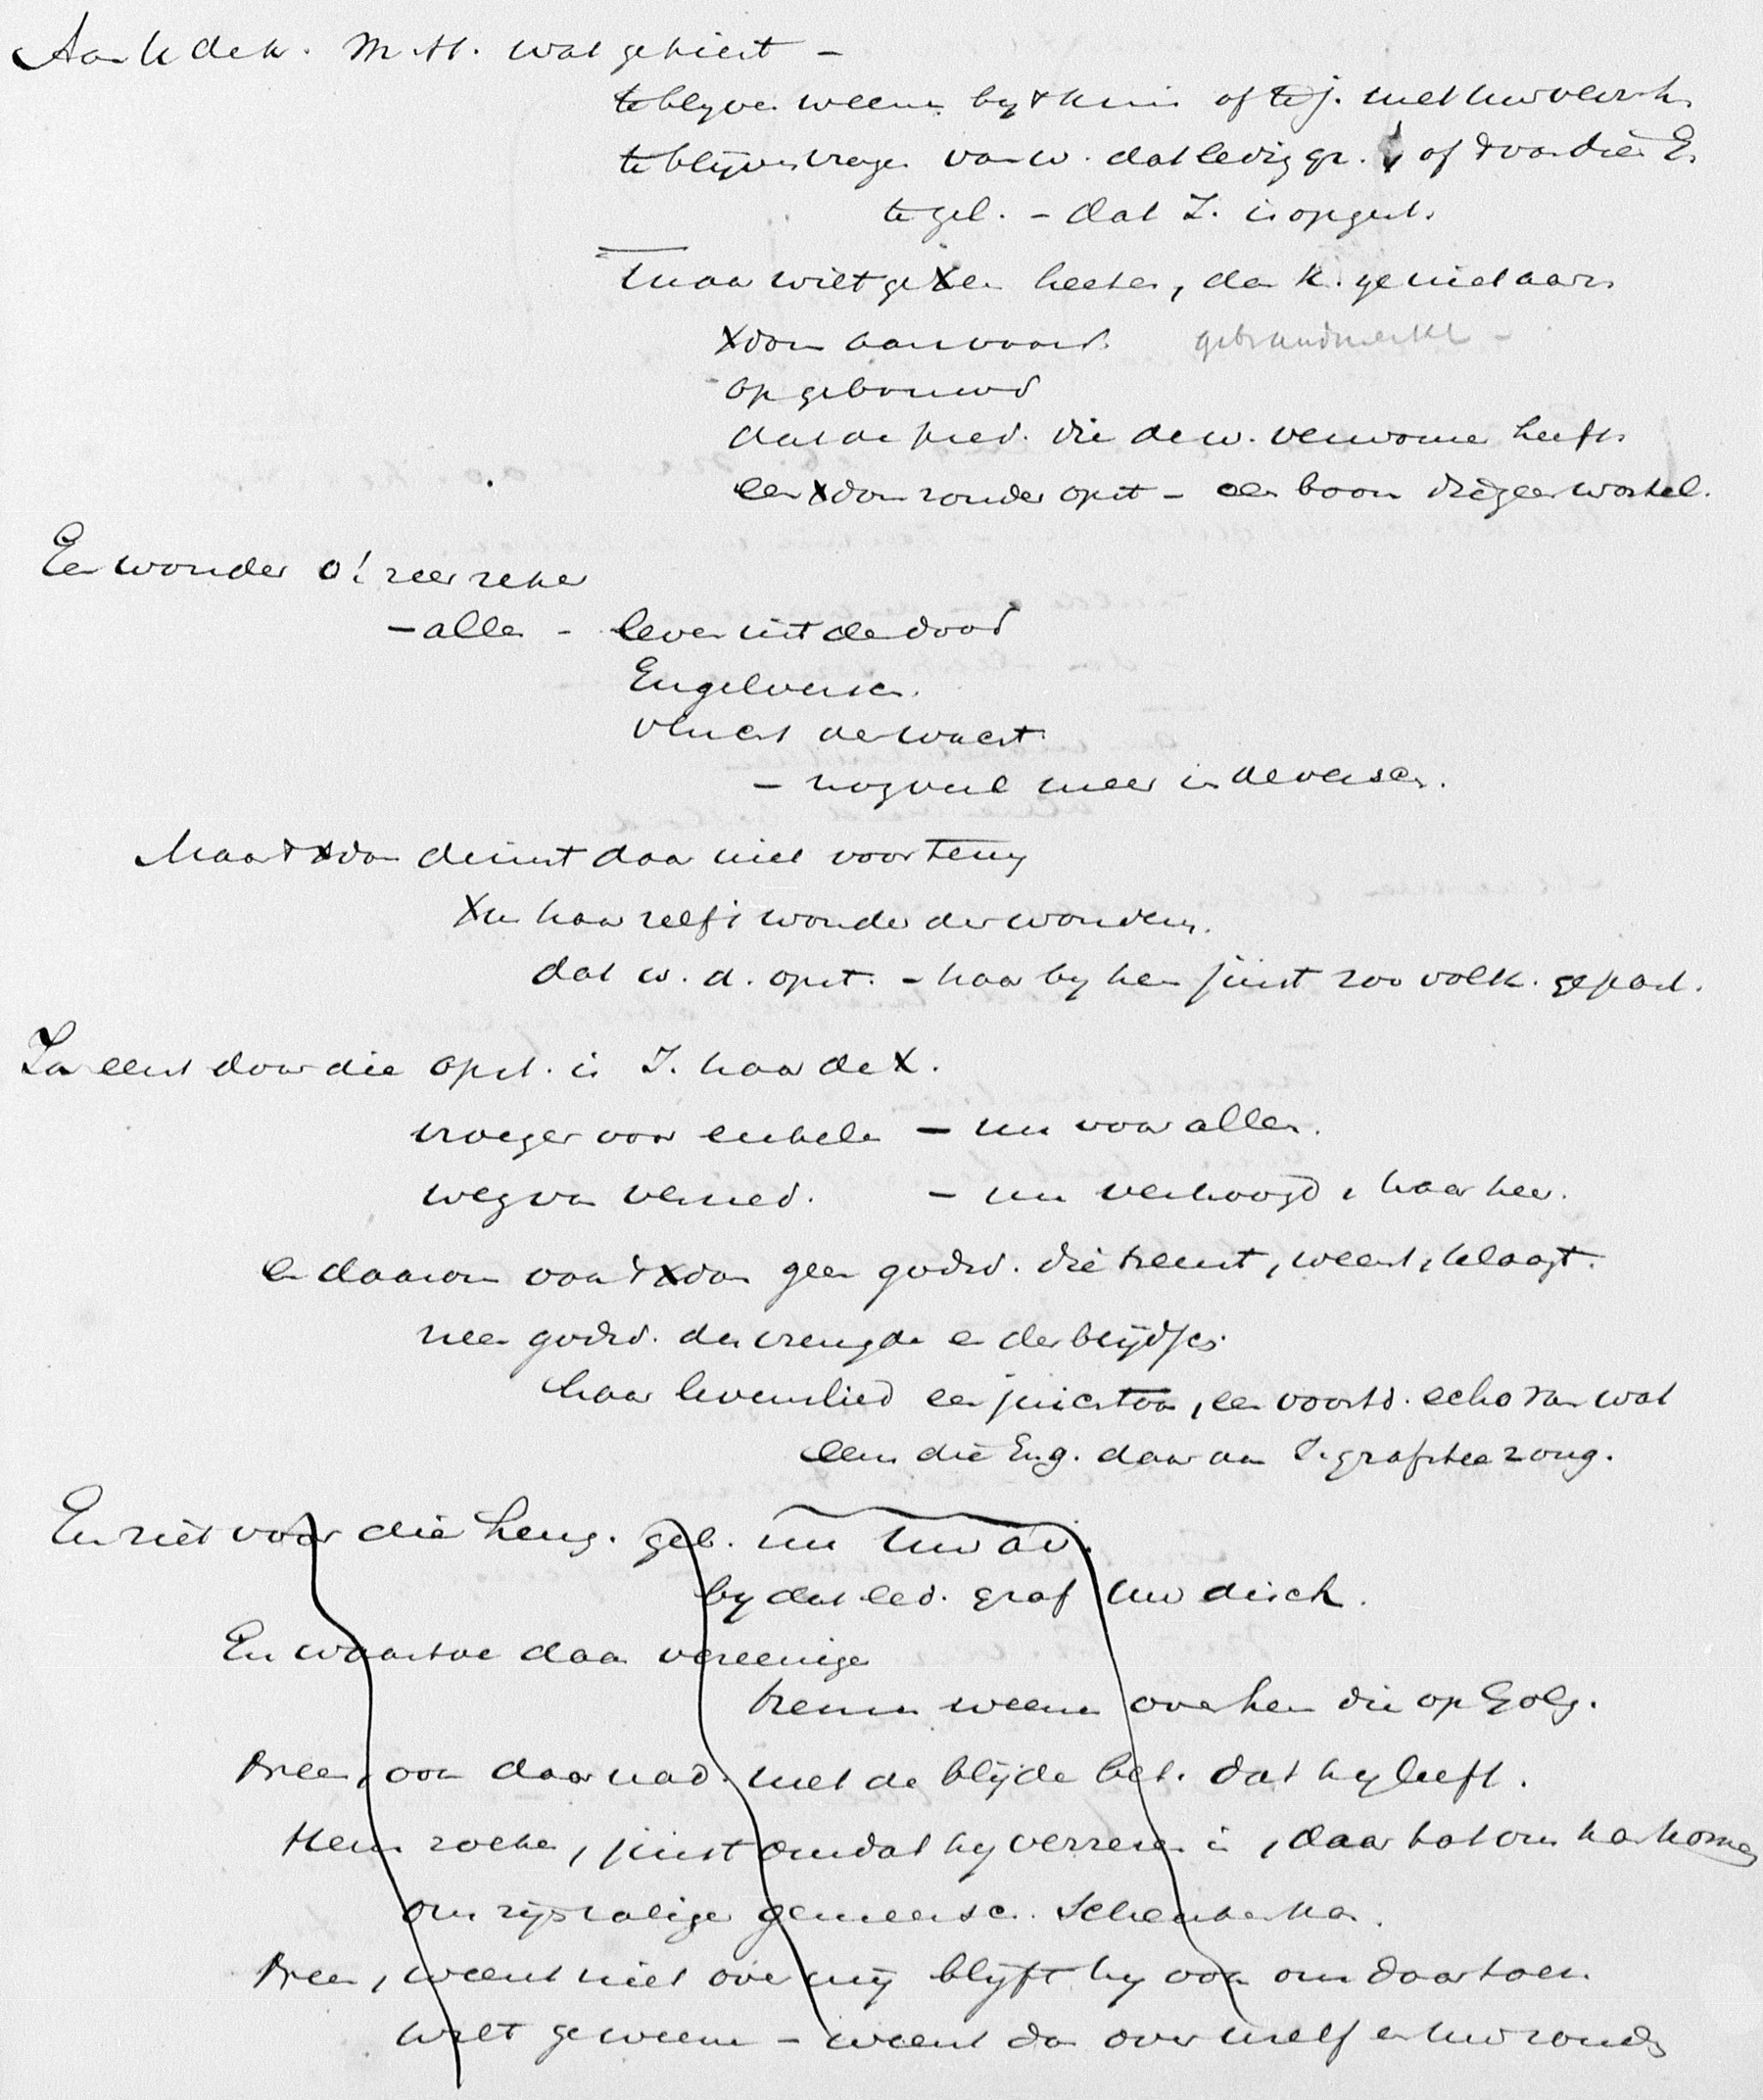 Aan U de k. M. H. wat gekiest –
te blyven weenen by t kruis of te j. met uw verr. h.
te blijven vragen van w. dat ledig gr. of t van die E.
te gel. – dat J. is opgest.
maar wilt ge Xen heeten, dan k. ge niet aarz.
Xdom aanvaard. gebrandmerkt –
opgebouwd
dat de pred. die de w. verwonnen heeft.
een Xdom zonder opst – een boom die geen wortel.
Een wonder o! zeer zeker
– alles – leven uit den dood
Engelversch.
vlucht der wacht
– nog veel meer in de versch.
Maar t Xdom deinst daar niet voor terug
Xus haar zelf 't wonder der wonderen.
dat w. d. opst. – haar by hem juist zoo volk. gepast.
Ja eerst door die opst. is J. haar de X.
vroeger voor enkelen – nu voor allen.
weg van verned. – nu verhoogd, haar heer.
en daarom voor t Xdom geen godsd. die treurt, weent, klaagt.
neen godsd. der vreugde en der blijdsch.
haar levenslied een juichtoon, een voortd. echo van wat
eens die Eng. daar aan J. grafstee zong.
En ziet voor die heug. geb. nu uw av.
by dat led. graf uw disch.
En waartoe daar vereenigen
treuren weenen over hem die op Golg.
Neen, ook daar nad. met de blijde bel. dat hy leeft.
Hem zoeken, juist omdat hy verrezen is, daar tot ons kan komen
ons zijn zalige gemeensc. schenken kan.
Neen, weent niet over mij blijft hy ook ons daar toer.
wilt ge weenen – weent dan over u zelf en uw zonden